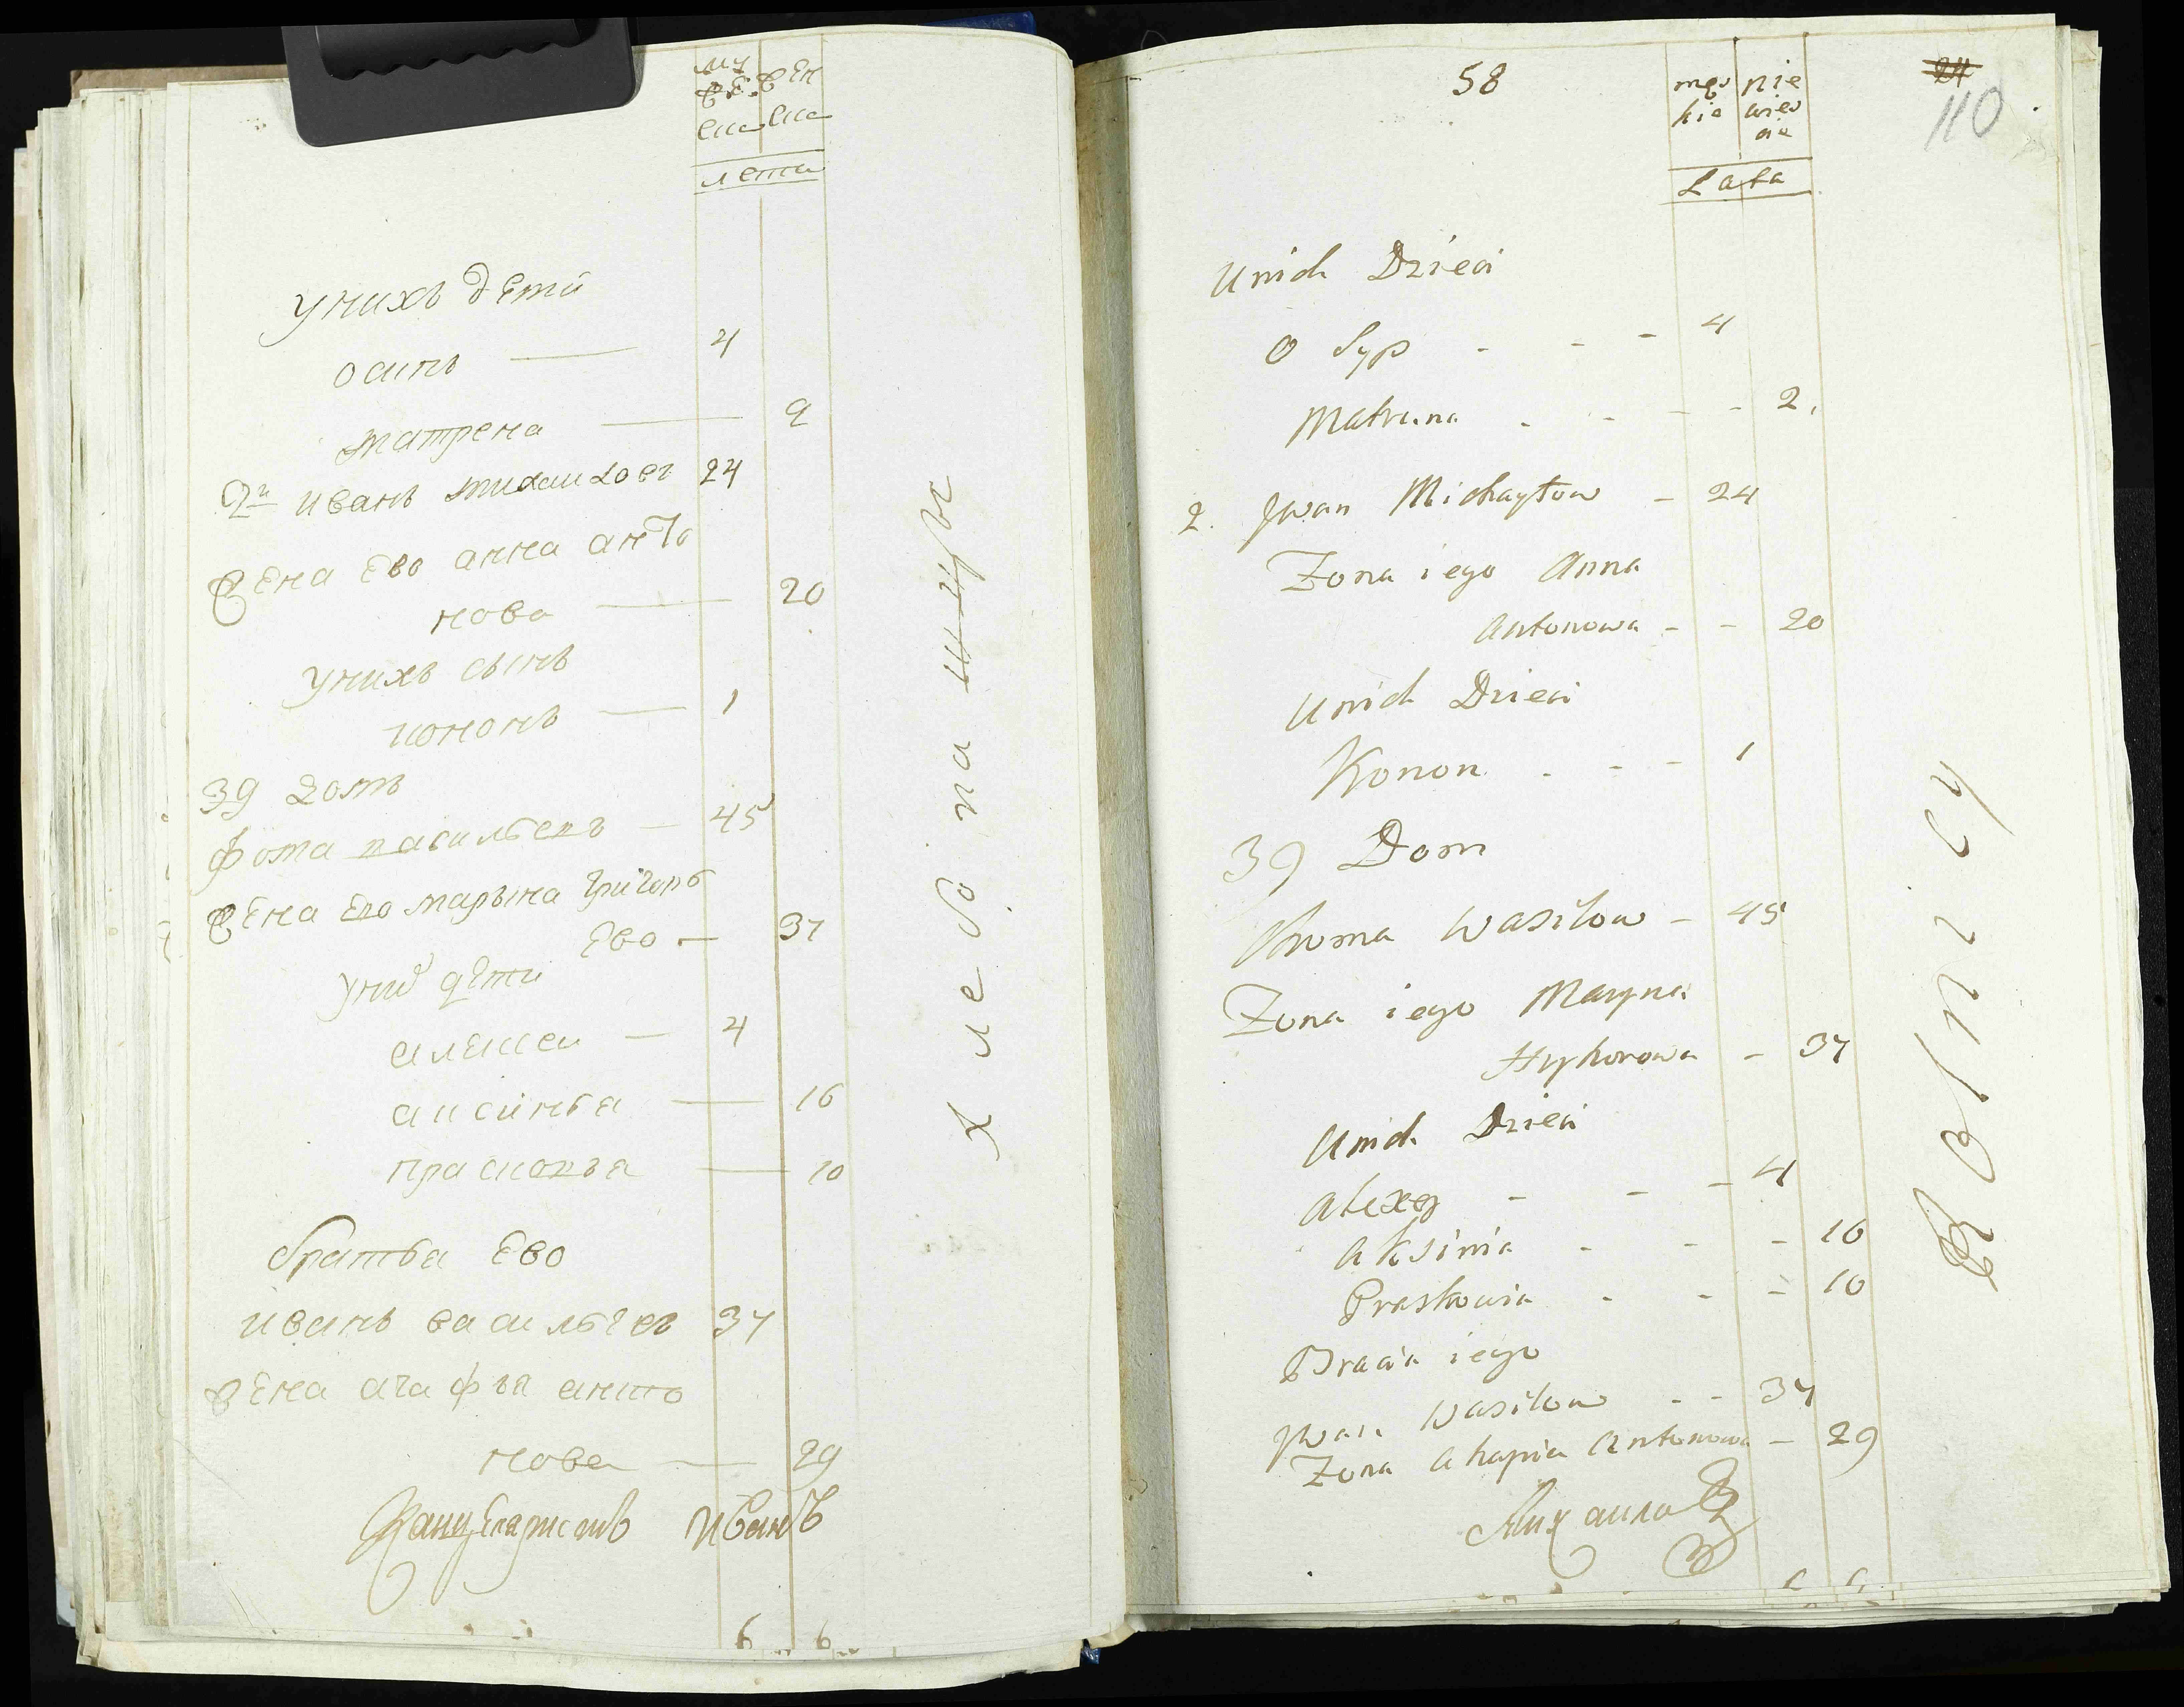 му
жс. жен
ска ска
лета
у нихъ дети
осипъ — 4
матрена — 2
2й иванъ михаиловъ 24
жена ево анна анто
нова — 20
у нихъ сынъ
кононъ — 1
39 домъ
фома васильевъ — 45
жена ево марына григорь
ева — 37
у них дети
алексеи — 4
аксинья — 16
прасковья — 10
братья ево
иванъ васильевъ 37
жена агафья анто
нова — 29
Иванъ
6 6
хлебопашцы
58
24
110
męs nie
kie wieś
cie
Lata
U nich Dzieci
O Syp - - - 4
Matruna - - - - 2.
2. Jwan Michayłow - 24
Zona iego Anna
Antonowa - - 20
U nich Dzieci
Konon - - - 1
39 Dom
Choma Wasilow - 45
Zona iego Maryna
Hryhorowa - 37
U nich Dzieci
Alexey - - - 4
Aksinia - - - 16
Praskowia - - - 10
Bracia iego
Jwan Wasilow - - 37
Zona Ahapia Antonowa - 29
Михаило
6 6